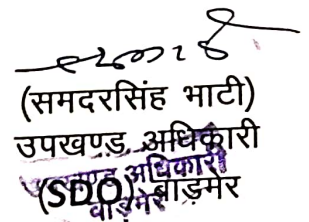 (समदरसिंह भाटी)
उपखण्ड अधिकारी
(SDO) बाड़मेर
उपखण्ड अधिकारी
बाड़मेर